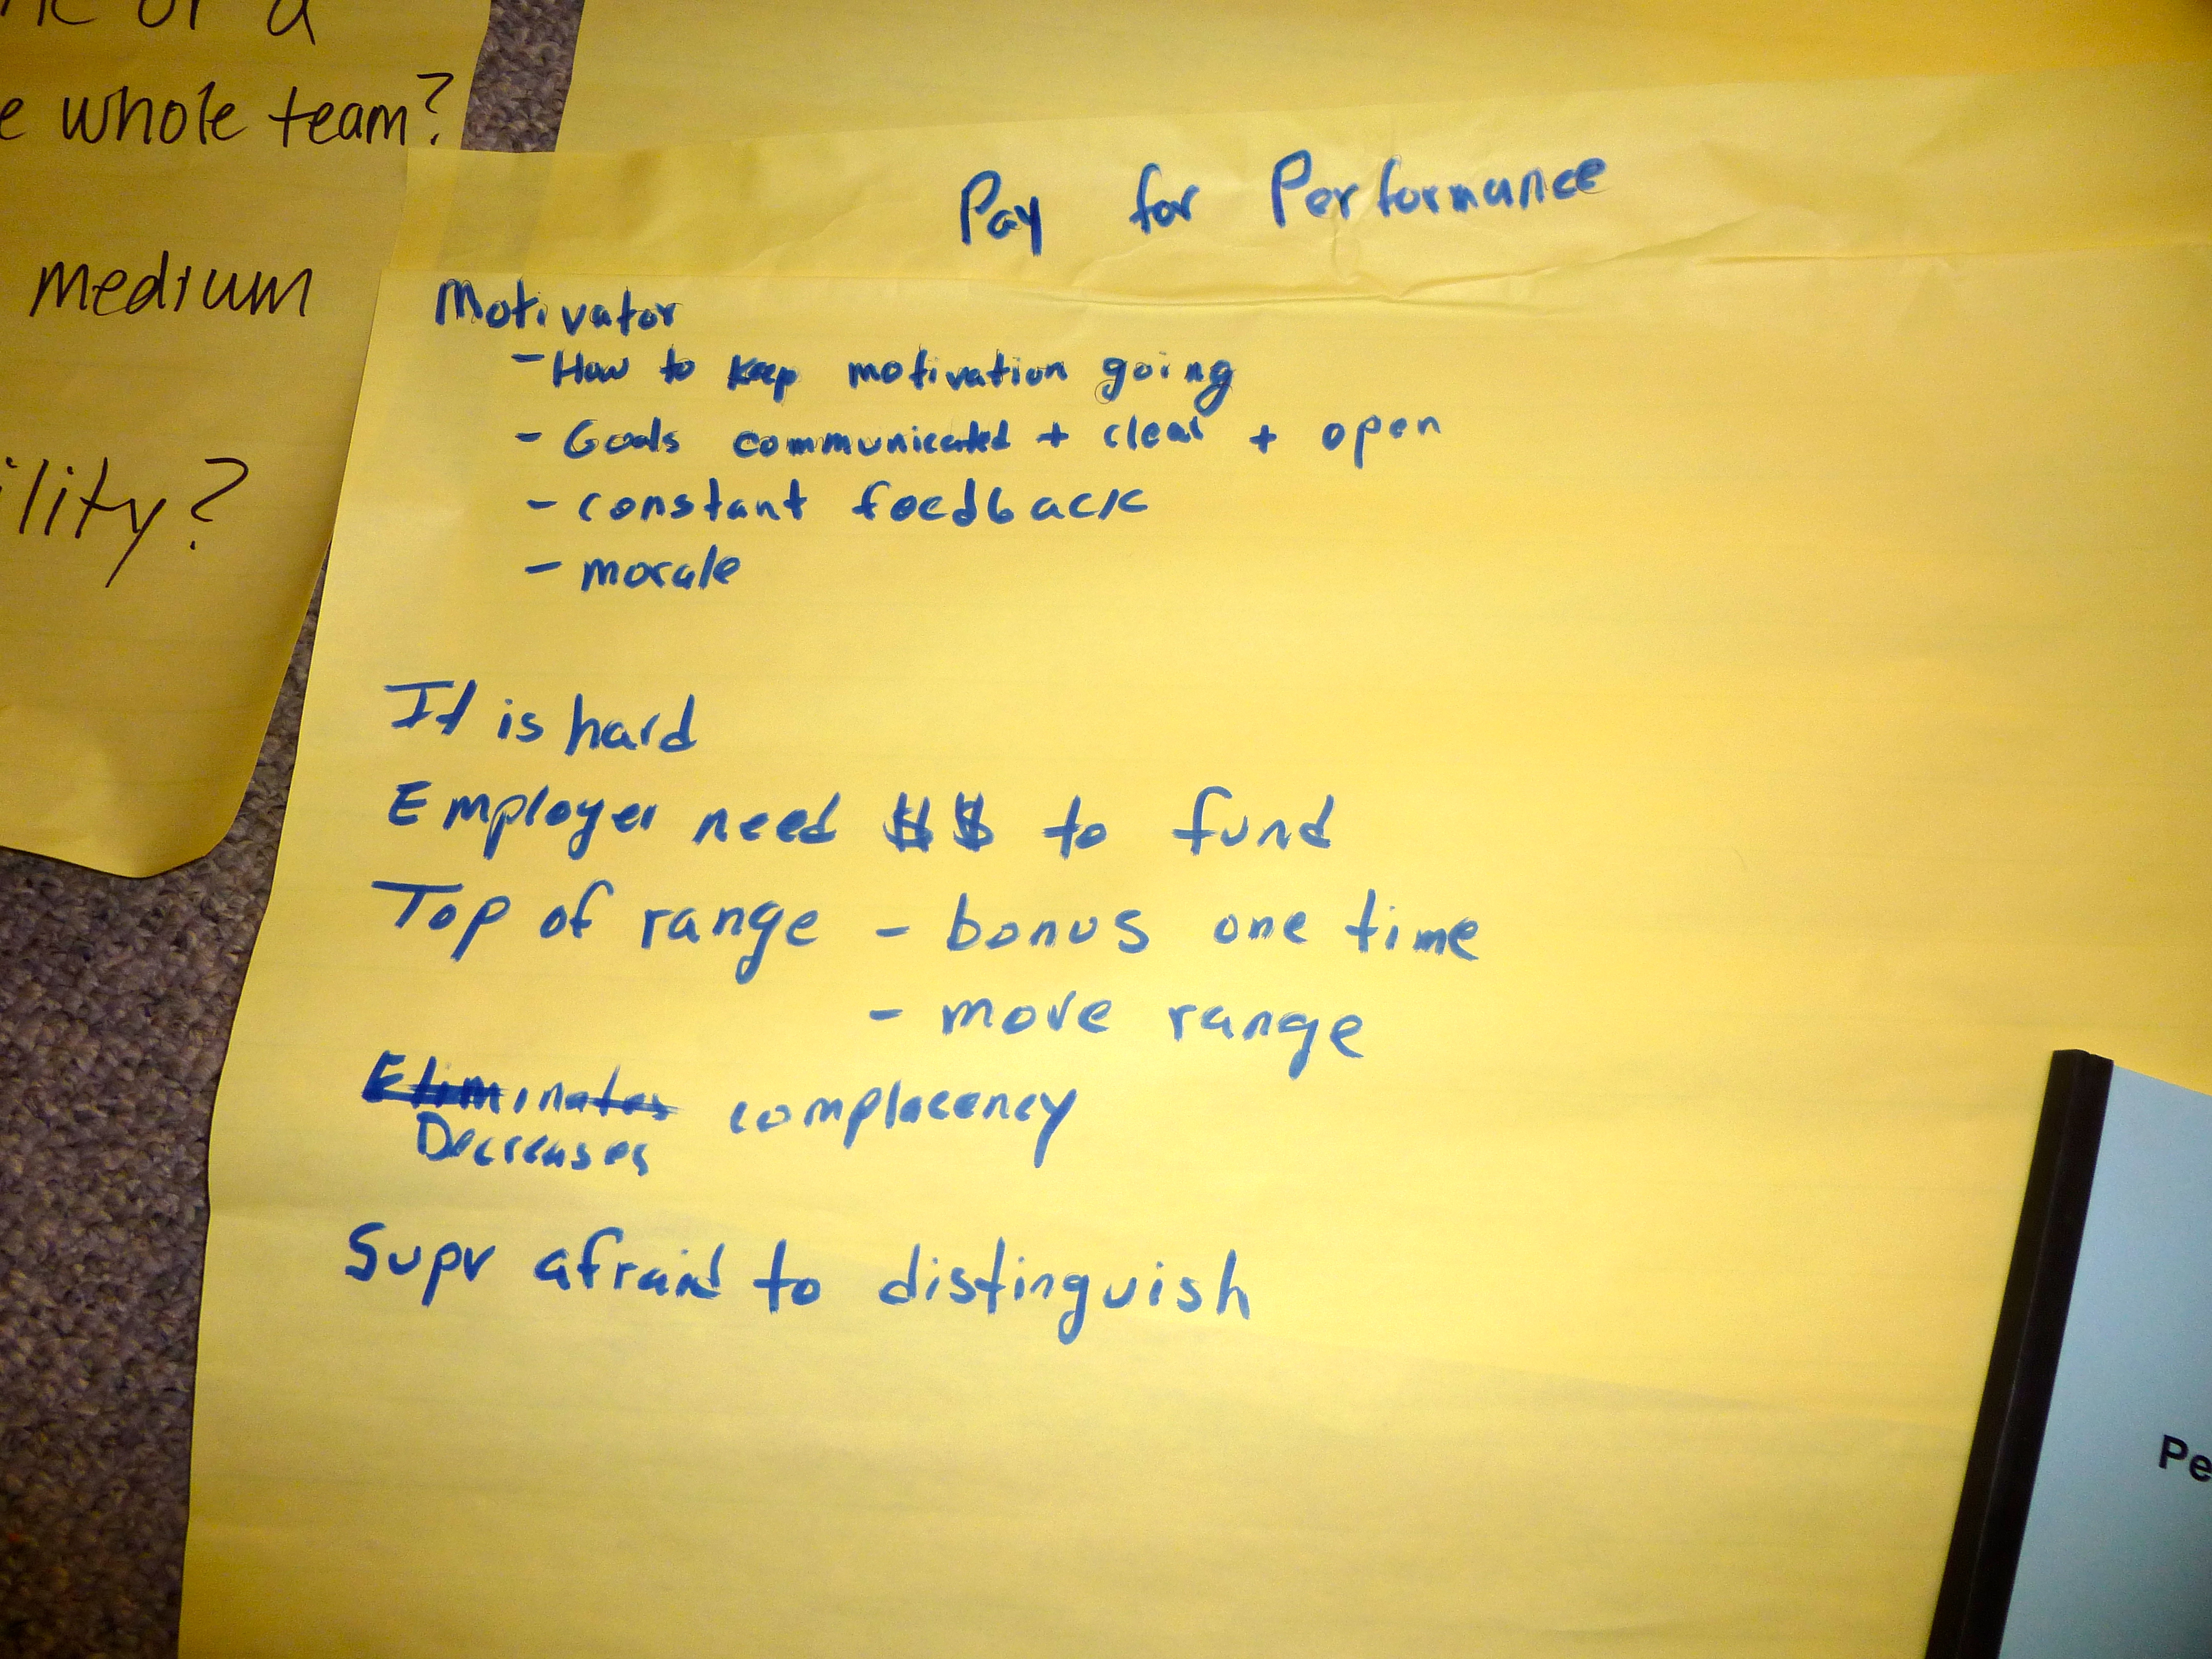 or a
whole team?
medium
ility?
Pay for Performance
Motivator
- How to keep motivation going
- Goals communicated + clear + open
- constant feedback
- morale
It is hard
Employer need $$ to fund
Top of range - bonus one time
- move range
Eliminates complacency
Decreases
Supv afraid to distinguish
Pe